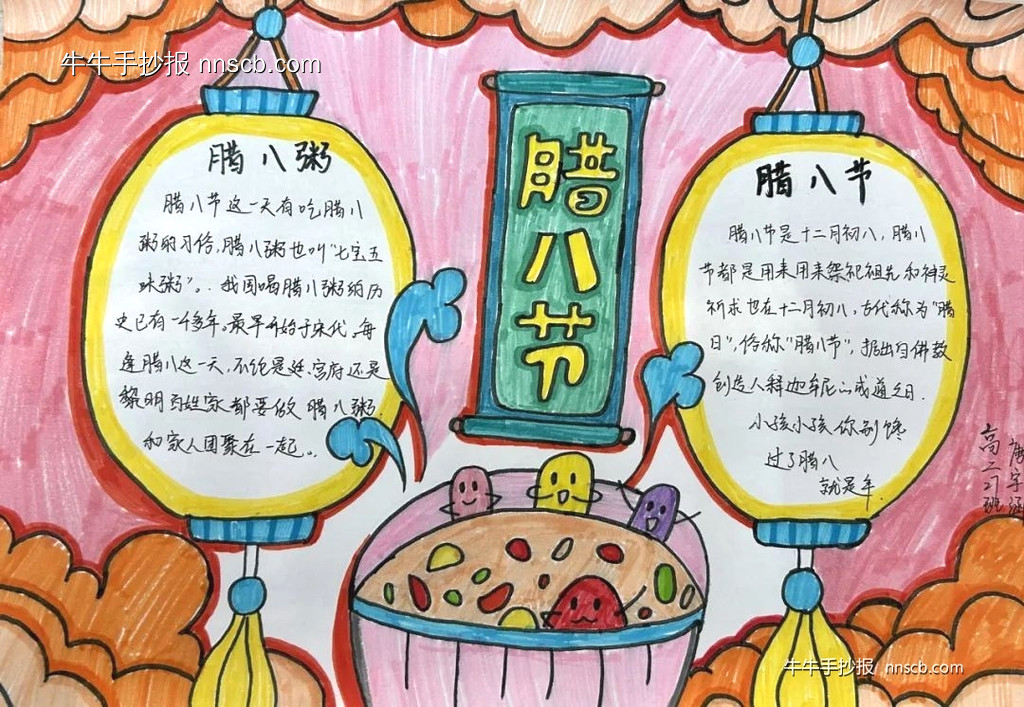 牛牛手抄报 nnscb.com
腊八粥
腊八节这一天有吃腊八
粥的习俗,腊八粥也叫"七宝五
味粥"。我国喝腊八粥的历
史已有一千多年。最早开始于宋代。每
逢腊八这一天,不论是
官府还是
黎明百姓家都要做 腊八粥.
和家人团聚在一起。
腊八节
腊八节
腊八节是十二月初八,腊八
节都是用来用来祭祀祖先和神灵
祈求也在十二月初八,古代称为"腊
日",俗称"腊八节",
佛教
创造人释迦牟尼
成道之日.
小孩小孩你别馋
过了腊八
就是年.
高二
班
牛牛手抄报 nnscb.com